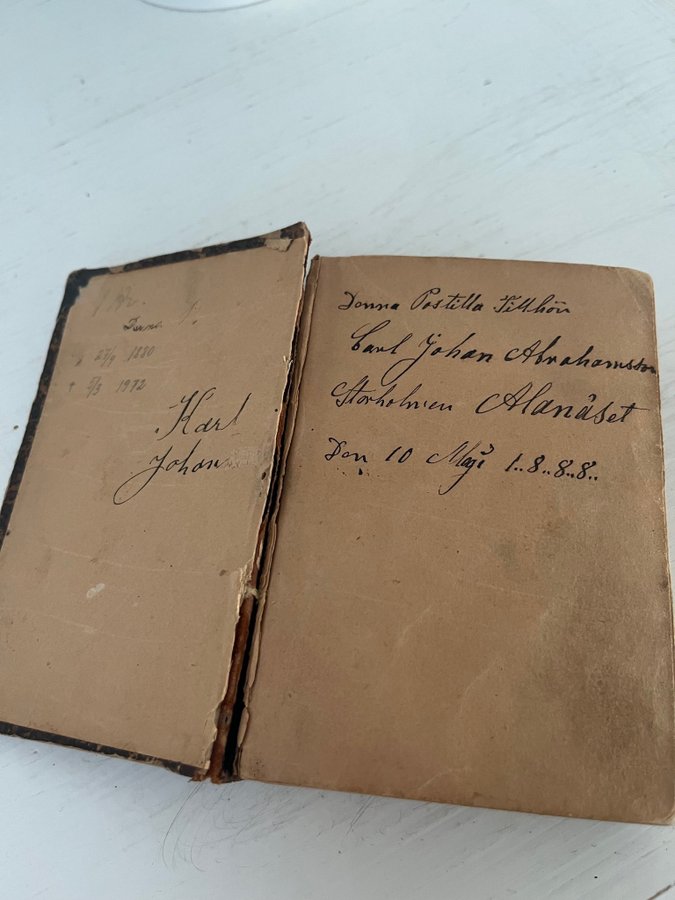 27/9 1880
+ 5/3 1972
Karl
Johan
Denna Postilla Tillhör
Carl Johan Abrahamsson
Storholmen Alanäset
Den 10 Maji 1..8..8..8..